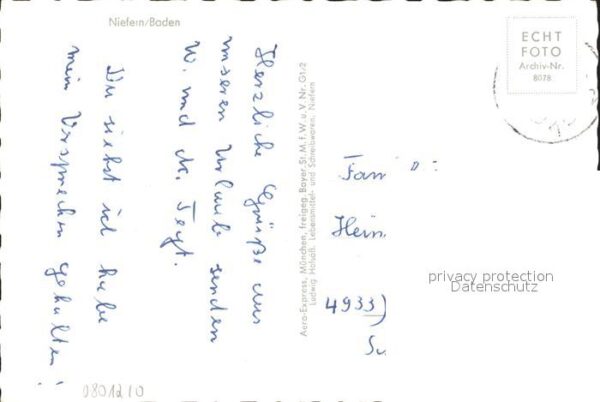 Niefern/Baden
Herzliche Grüße aus
unseren Urlaub senden
W. und M. Feyt.
Du siehst ich habe
mein Versprechen gehalten!
Aero-Express, München, freigeg. Bayer. St. M. f. W. u. V. Nr. G1/2
Ludwig Lebensmittel- und Schreibwaren, Niefern
ECHT
FOTO
Archiv-Nr.
8078
Fam
Hein
4933)
privacy protection
Datenschutz
0801210